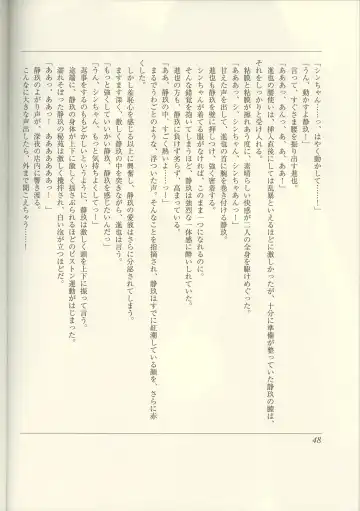 「シンちゃん……っ……はやく動かして……！」
「うん、動かすよ静玖」
言って、すぐさま腰を振り出す進也。
「あああっ、あんっ、ああ、ああ！」
進也の腰使いは、挿入直後にしては乱暴といえるほどに激しかったが、十分に準備が整っていた静玖の膣は、
それをしっかりと受け入れる。
粘膜と粘膜が擦れあう度に、素晴らしい快感が二人の全身を駆けめぐった。
「あああっ、シンちゃん、シンちゃああんっー！」
甘え声を出して、進也の首に腕を巻き付ける静玖。
進也も静玖を壁に押しつけ、強く密着する。
シンちゃんが着てる服がなければ、このまま一つになれるのに。
そんな錯覚を抱いてしまうほど、静玖は強烈な一体感に酔いしれていた。
進也の方も、静玖に負けず劣らず、高まっている。
「ああっ、静玖の中、すごく熱いよ……っ！」
まるでうわごとのような、浮ついた声。そんなことを指摘され、静玖はすでに紅潮している顔を、さらに赤
くした。
しかし羞恥心を感じる以上に興奮し、静玖の愛液はさらに分泌されてしまう。
ますます深く、激しく静玖の中を突きながら、進也は言う。
「もっと強くしていいかい静玖、静玖を感じたいんだっ」
「うん、シンちゃん、もっと気持ちよくしてっ！」
返事をするのももどかしいというように、静玖は激しく頭を上下に振って言う。
途端に、静玖の身体が上下に激しく揺さぶられるほどのピストン運動がはじまった。
濡れそぼった静玖の秘苑は激しく攪拌され、白い泡が立つほどだ。
「あっ、ああっー！　ああああああっー！」
静玖のよがり声が、深夜の店内に響き渡る。
こんなに大きな声出したら、外まで聞こえちゃう……！
48